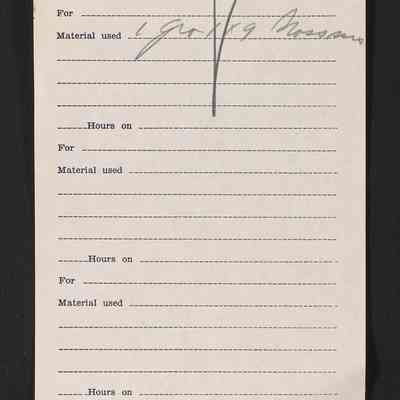 For
Material used 1 gro 119 Blossoms
Hours on
For
Material used
Hours on
For
Material used
Hours on